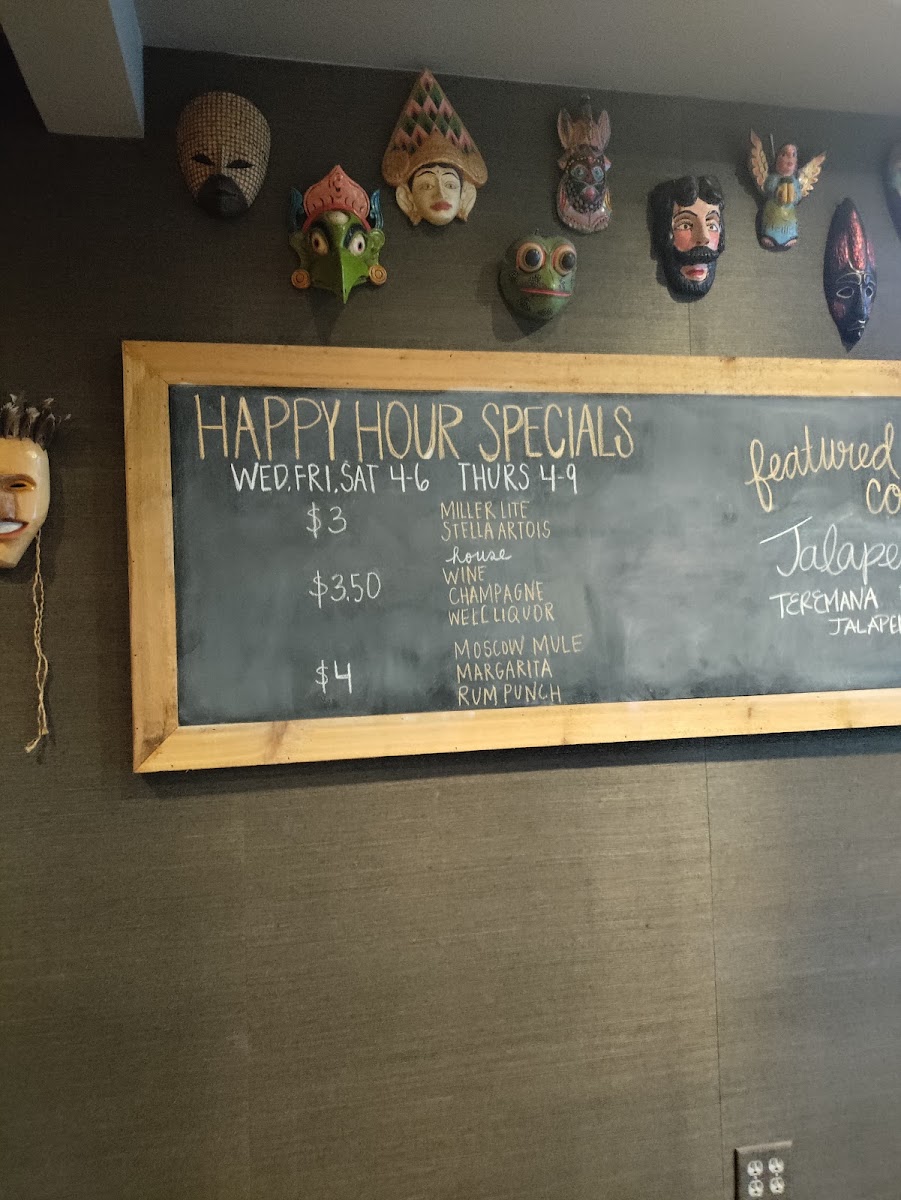 HAPPY HOUR SPECIALS
WED, FRI, SAT 4-6 THURS 4-9
$3
MILLER LITE
STELLA ARTOIS
$3.50
house
WINE
CHAMPAGNE
WELL LIQUOR
$4
MOSCOW MULE
MARGARITA
RUM PUNCH
featured
TEREMANA